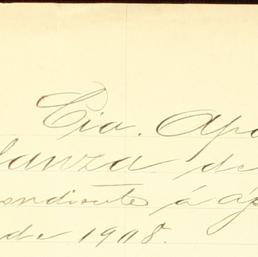 Cia. Apo
lanza de
ondiente á ag
de 1908.